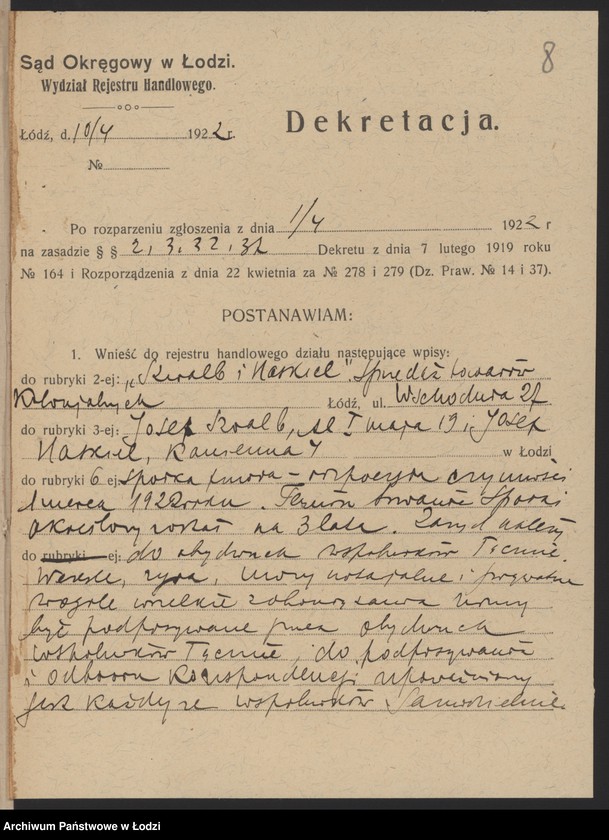 8
Sąd Okręgowy w Łodzi.
Wydział Rejestru Handlowego.
Łódź, d. 10/4 1922 r.
№
Dekretacja.
Po rozparzeniu zgłoszenia z dnia 1/4 1922 r
na zasadzie § § 2, 3, 22, 32 Dekretu z dnia 7 lutego 1919 roku
№ 164 i Rozporządzenia z dnia 22 kwietnia za № 278 i 279 (Dz. Praw. № 14 i 37).
POSTANAWIAM:
1. Wnieść do rejestru handlowego działu następujące wpisy:
do rubryki 2-ej: „Szwalb i Haskiel". Sprzedaż towarów
Kolonjalnych Łódź, ul. Wschodnia
do rubryki 3-ej: Josef Szwalb, 1 maja 19 i Josef
Haskiel, Kamienna 7 w Łodzi
do rubryki 6 ej: Spółka firmowa – rozpoczęła czynności
1 marca 1922 roku. Termin trwania Spółki
określony został na 3 lata. Zarząd należy
do rubryki ej: do obydwuch wspólników łącznie.
Weksle, żyra, umowy notarjalne i prywatne
wogóle wszelkie zobowiązania winny
być podpisywane przez obydwuch
wspólników łącznie, do podpisywania
i odbioru korespondencji upoważniony
jest każdy ze wspólników samodzielnie.
Archiwum Państwowe w Łodzi